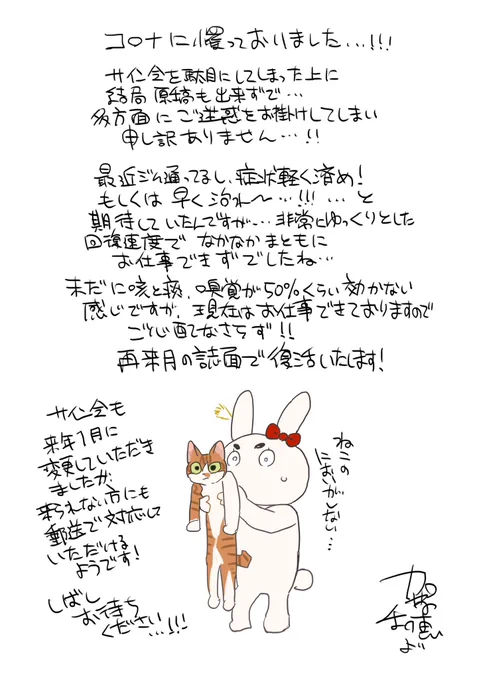 コロナに罹っておりました…!!!
サイン会を駄目にしてしまった上に
結局原稿も出来ずで…
多方面にご迷惑をお掛けしてしまい
申し訳ありません…!!
最近ジム通ってるし、症状軽く済め!
もしくは早く治れ〜…!!!…と
期待していたんですが…非常にゆっくりとした
回復速度でなかなかまともに
お仕事できずでしたね…
未だに咳と痰、嗅覚が50%くらい効かない
感じですが、現在はお仕事できておりますので
ご心配なさらず!!
再来月の誌面で復活いたします!
サイン会も
来年1月に
変更していただき
ましたが、
来られない方にも
郵送で対応して
いただける
ようです!
しばし
お待ち
ください…!!!
ねこの
においがしない…